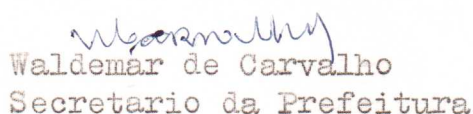 Waldemar de Carvalho
Secretario da Prefeitura